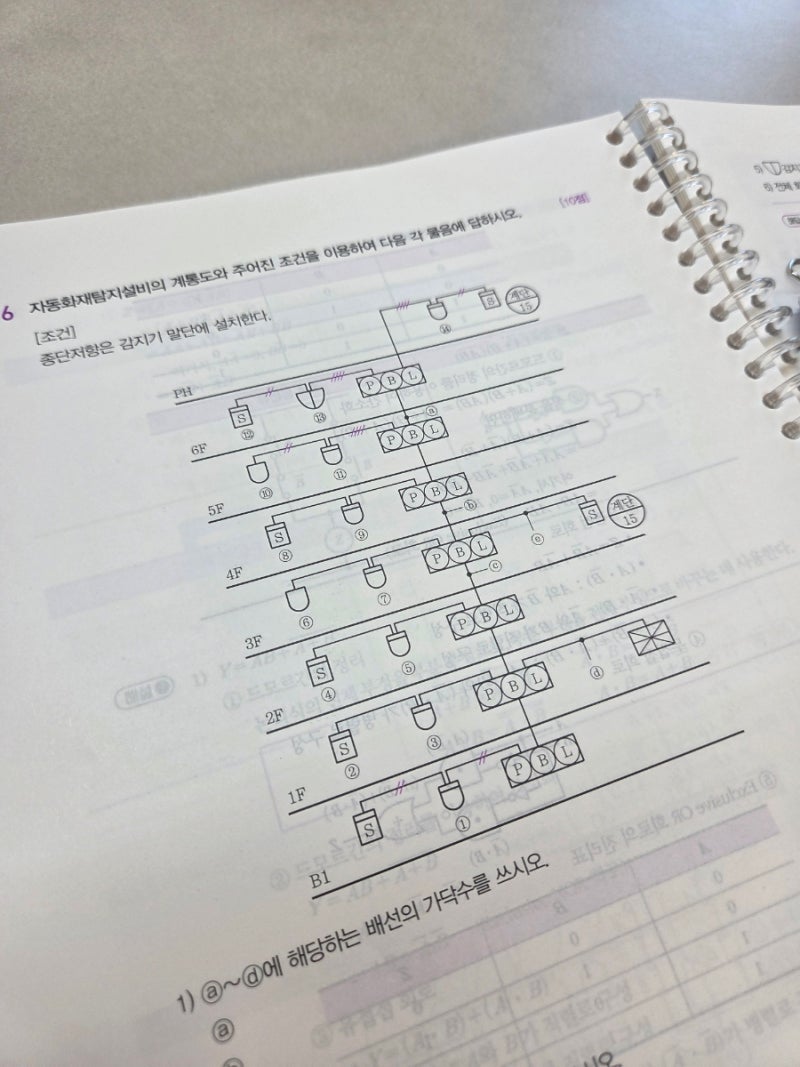 6 자동화재탐지설비의 계통도와 주어진 조건을 이용하여 다음 각 물음에 답하시오. [10점]
[조건]
종단저항은 감지기 말단에 설치한다.
⑭ S 계단 15
PH
S ⑫ ⑬ P B L
ⓐ
6F
⑩ ⑪ P B L
5F
S ⑧ ⑨ P B L
ⓑ
4F
⑥ ⑦ P B L ⓔ S 계단 15
ⓒ
3F
S ④ ⑤ P B L
2F
S ② ③ P B L ⓓ
1F
S ① P B L
B1
1) ⓐ~ⓓ에 해당하는 배선의 가닥수를 쓰시오.
ⓐ